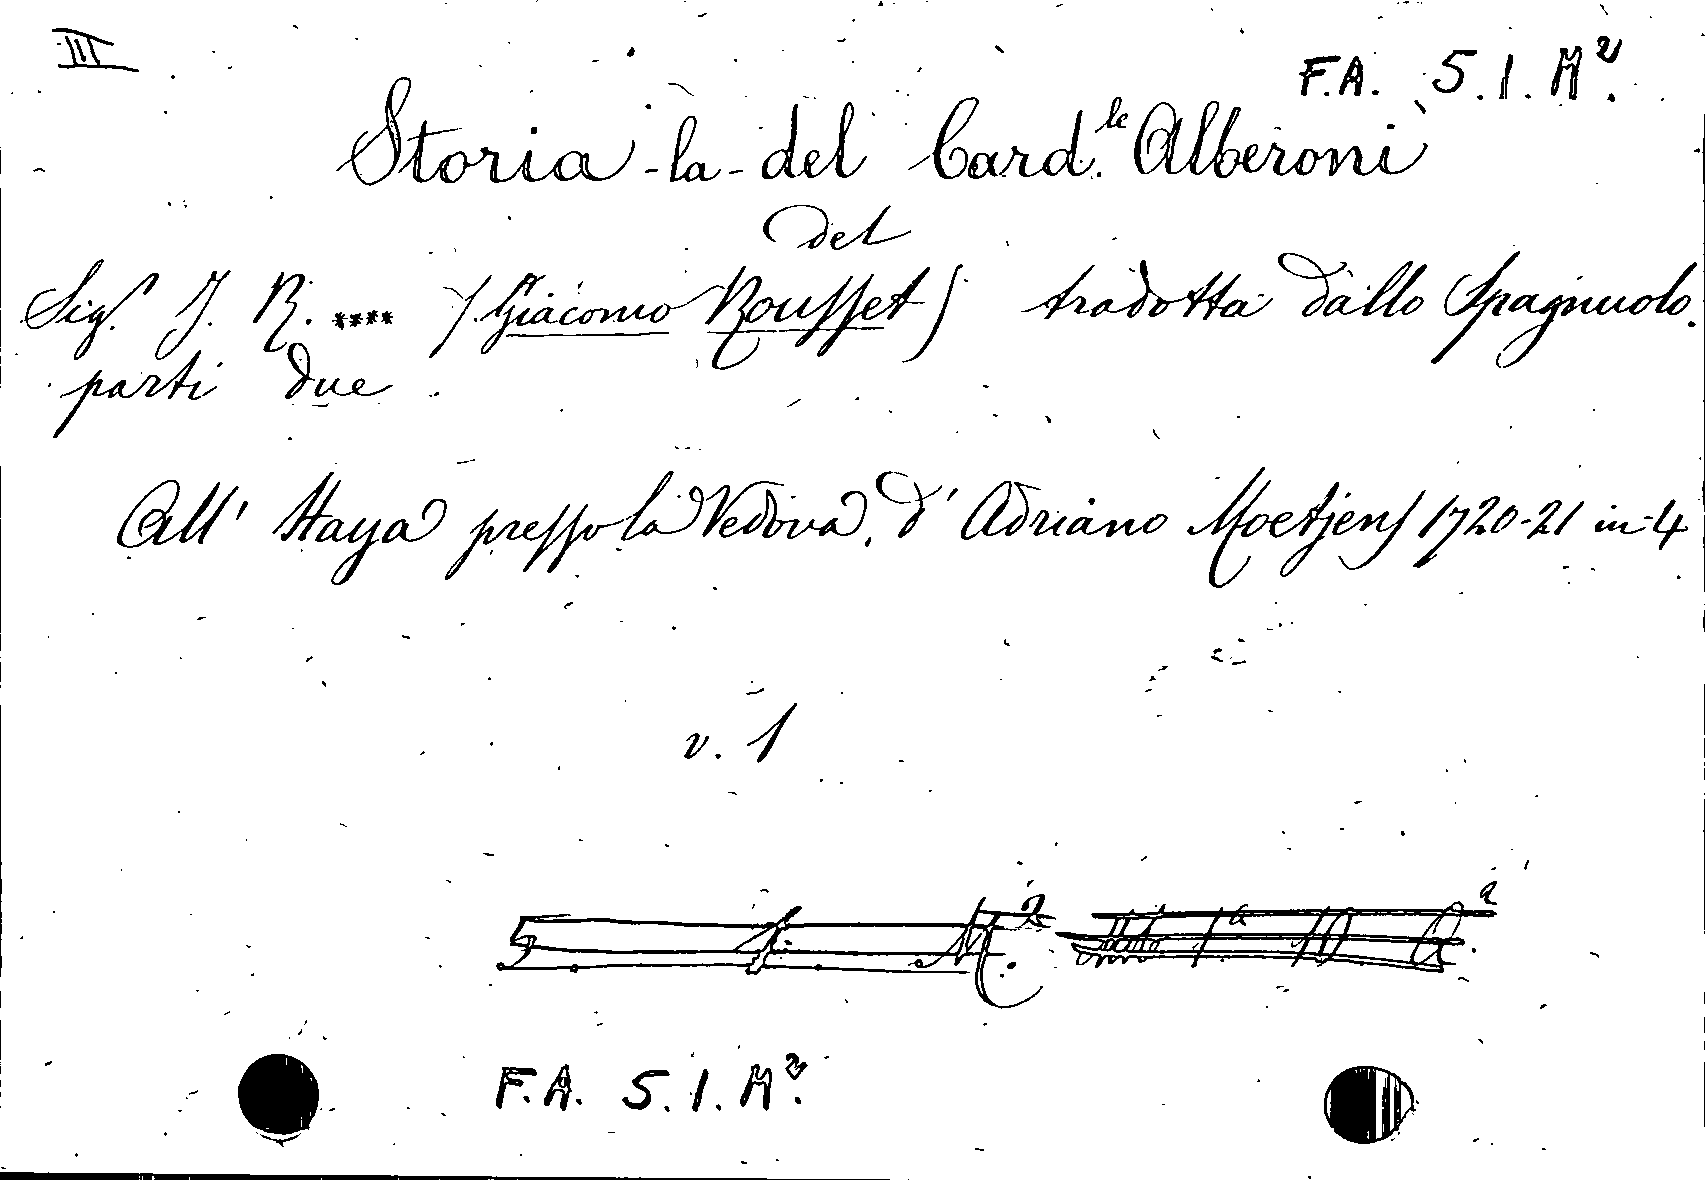 III
F.A. 5.1.M².
Storia -la- del Card.le Alberoni
del
Sigr J. R. **** (Giacomo Rousset) tradotta dallo Spagnuolo.
parti due.
All' Haya presso la Vedova, d' Adriano Moetjens 1720-21 in-4
v. 1
5. 1. M.2 1a 10 A.2
F.A. 5.1.M².